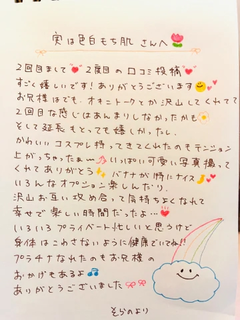 実は色白もち肌 さんへ
2回目まして 2度目の口コミ投稿
すごく嬉しいです!ありがとうございます
お兄様はでも、オキニトークとか沢山してくれてて
2回目な感じはあんまりしなかったかも
そして延長もとっても嬉しかったし、
かわいいコスプレ持ってきてくれたのもテンション
上がっちゃったぁー いっぱい可愛い写真撮って
くれてありがとう バナナが特にナイス
いろんなオプション楽しんだり、
沢山お互い攻め合って気持ちよくなれて
幸せで楽しい時間だったよ…
いろいろプライベート忙しいと思うけど
身体はこわさないように健康でいてね!!
プラチナなれたのもお兄様の
おかげもあるよ
ありがとうございました
そらのより